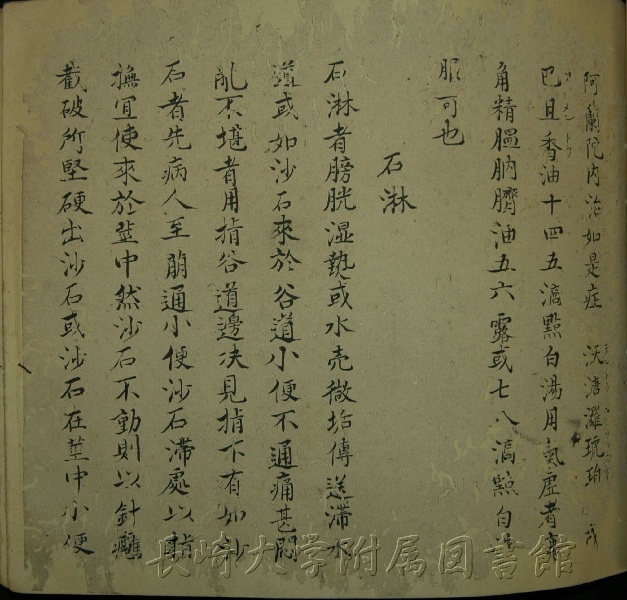 阿蘭陀内治如是症 沃溏濯琥珀 或
巴且香油十四五滴點白湯用氣虛者鹿
角精膃肭臍油五六露或七八滴點白湯
服可也
石淋
石淋者膀胱湿熱或水売微坮傳送滞水
道或如沙石來於谷道小便不通痛甚悶
乱不堪者用指谷道邊决見指下有如沙
石者先病人至前通小便沙石滞處以指
撫宜使來於莖中然沙石不動則以針癰
截破所堅硬出沙石或沙石在莖中小便
長崎大学附属図書館